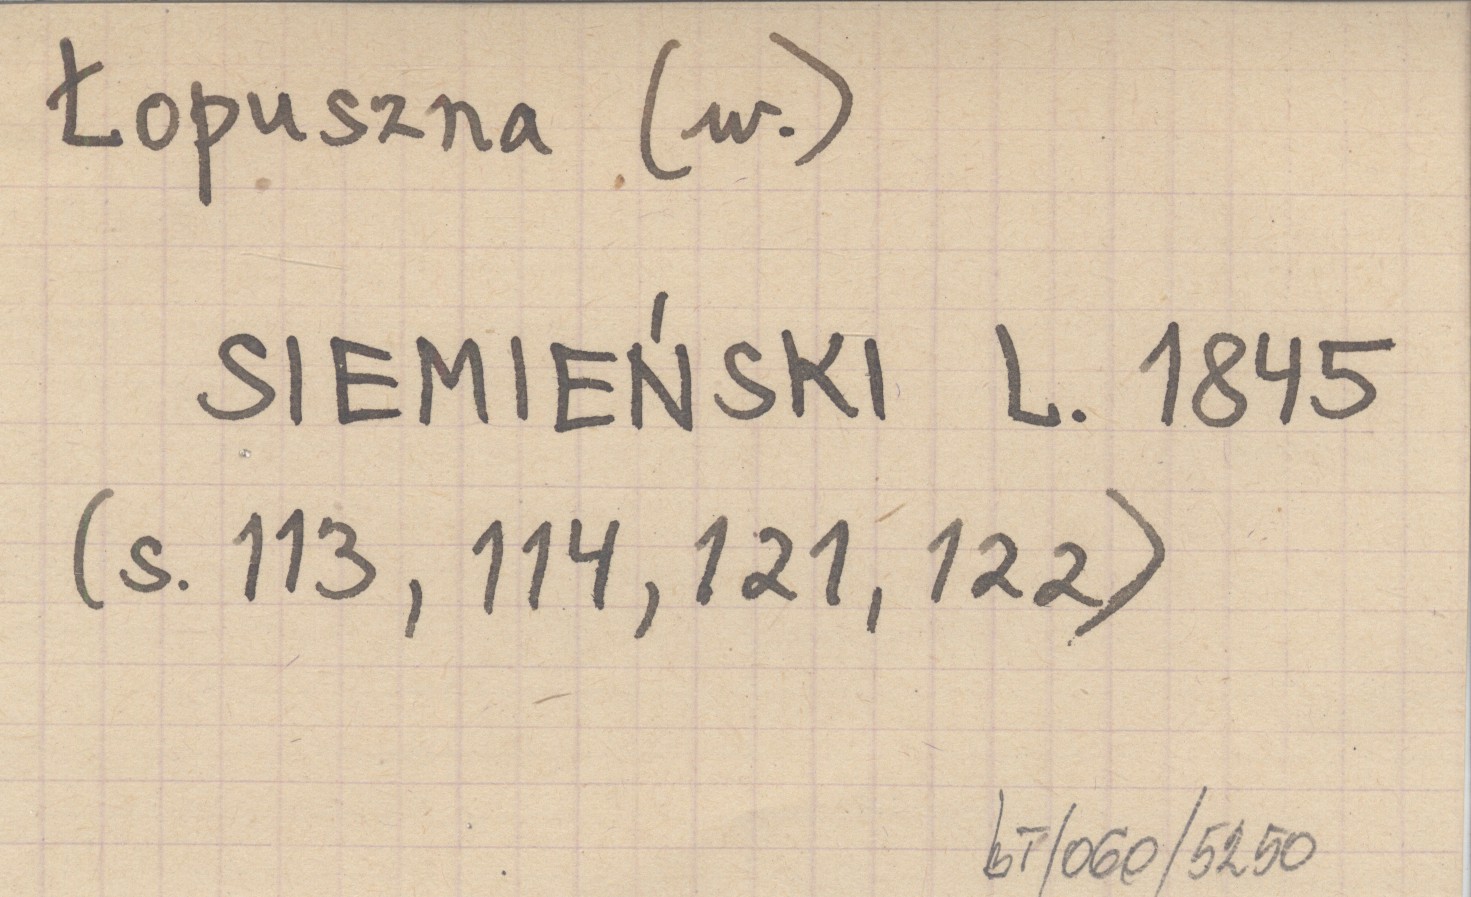 Łopuszna (w.)
SIEMIEŃSKI L. 1845
(s. 113, 114, 121, 122)
bT/060/5250